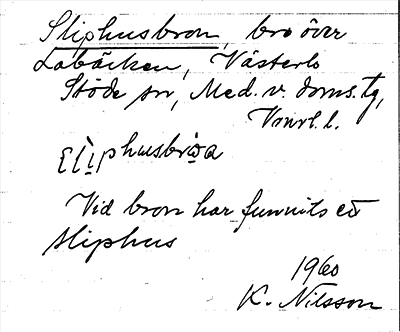 Sliphusbron, bro över
Labäcken, Västerlo
Stöde sn, Med. v. doms. tg,
Vnrl. l.
sliphusbròa
Vid bron har funnits ett
sliphus
1960
K. Nilsson